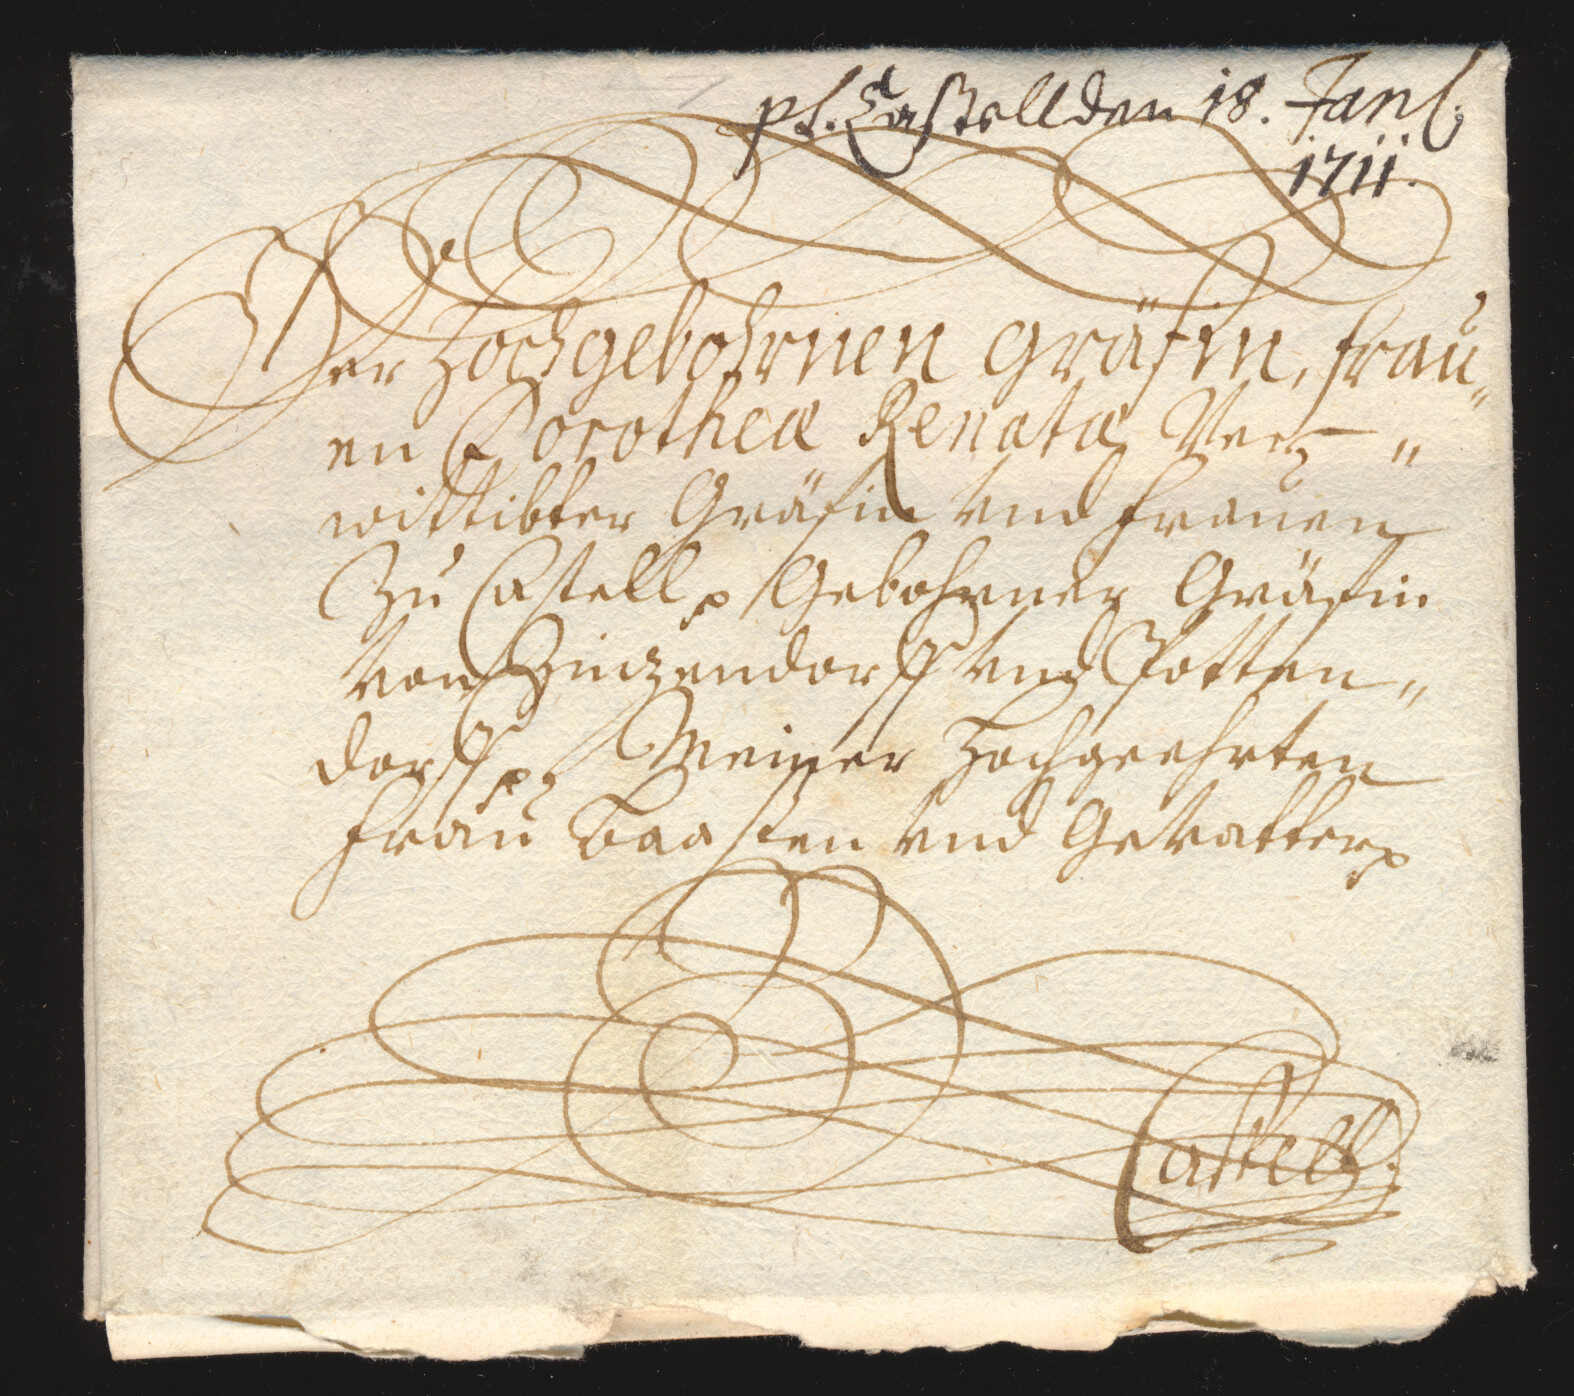 ps. Castell den 18. Jan.
1711.
Der Hochgebohrnen Gräfin, Frau„
en Dorothea Renata, Ver- „
wittibter Gräfin vnd Frauen
Zu Castell p Gebohrner Gräfin
von Zinzendorff vnd Potten„
dorff p. Meiner Hochgeehrten
Frau Baasen vnd Gevatter p
Castell.